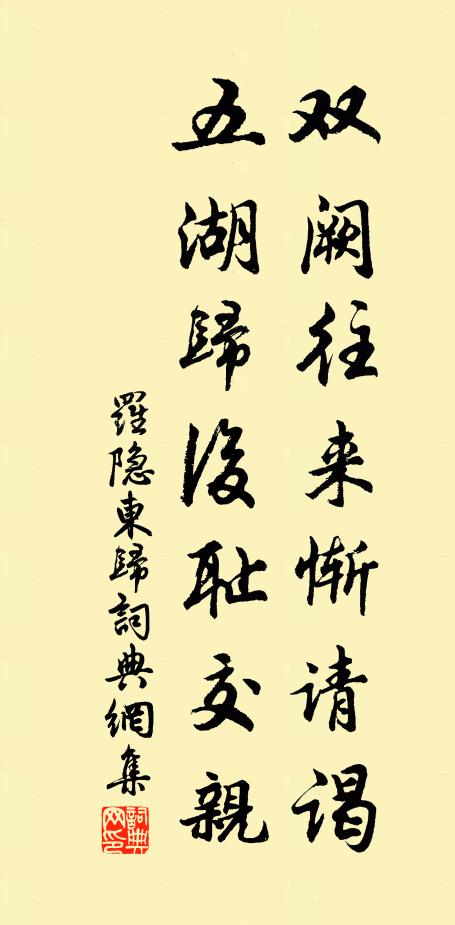 双阙往来惭请谒
五湖歸後耻交親
羅隐東歸詞典網集
詞典网印